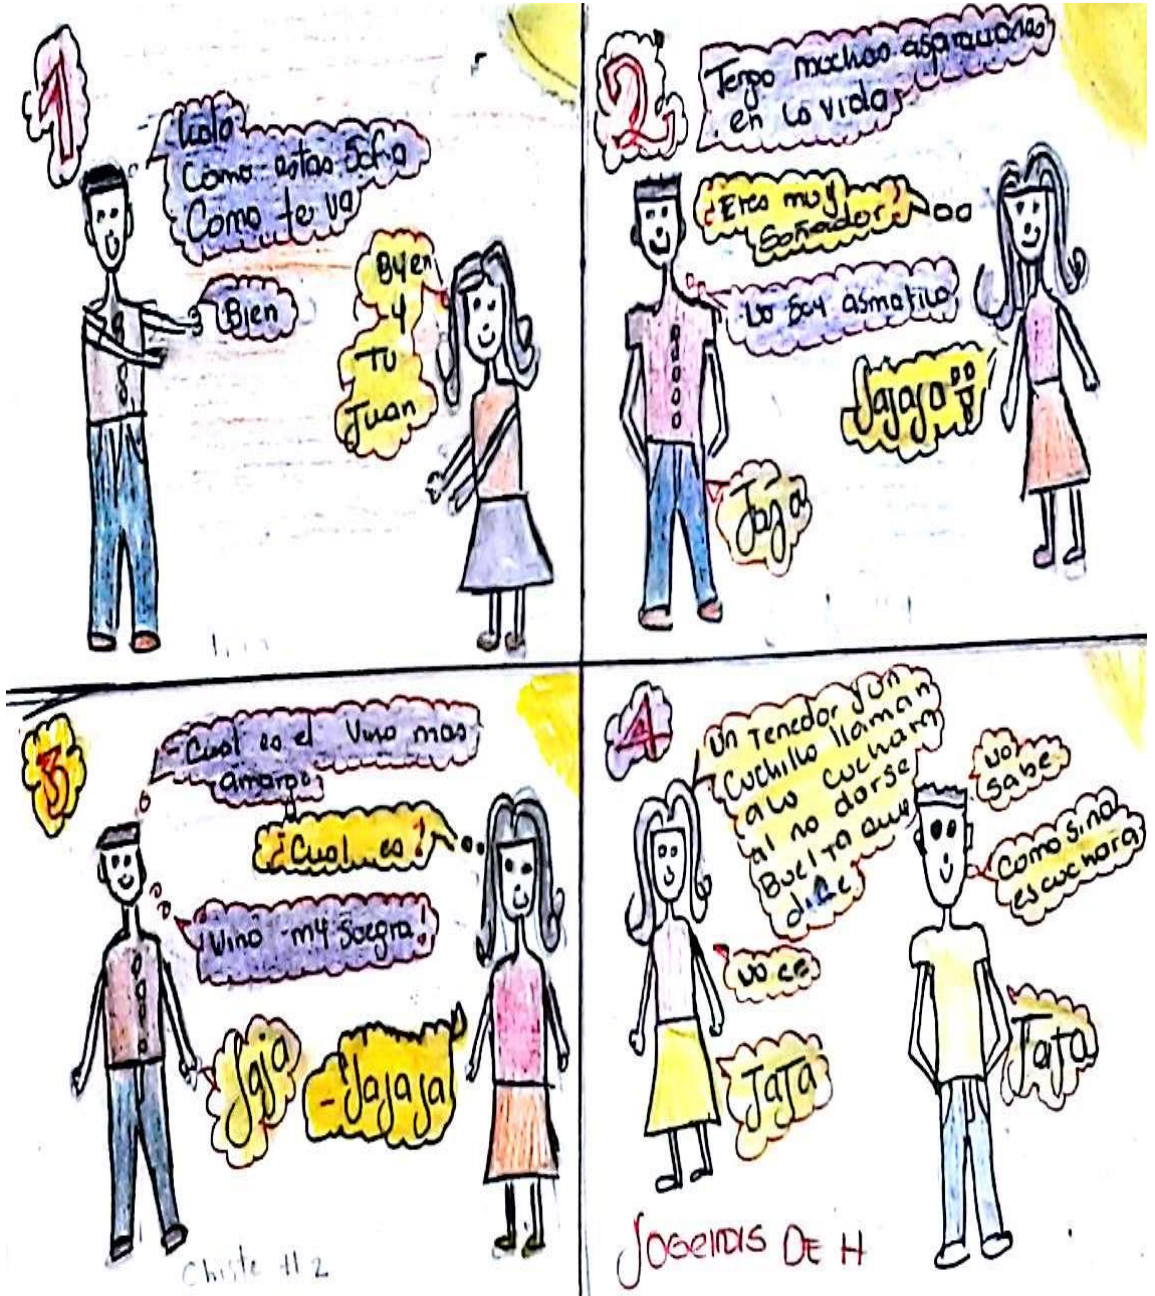 1
Hola
Como estas Sofia
Como te va
Byen
y
TU
Juan
Bien
2
Tengo muchas aspiraciones
en la vida
¿Eres muy
Soñador?
No soy asmatico
Jajaja
Jaja
3
- Cual es el Vino mas
amargo
¿Cual es?
Vino my suegra!
Jaja
- Jajaja
4
Un Tenedor y un
Cuchillo llaman
a lo cuchara
al no darse
Buelta que
dice
no sabe
no ce
Como si no
escuchara
JaJa
JaJa
Chiste # 2
JOGEIDIS DE H